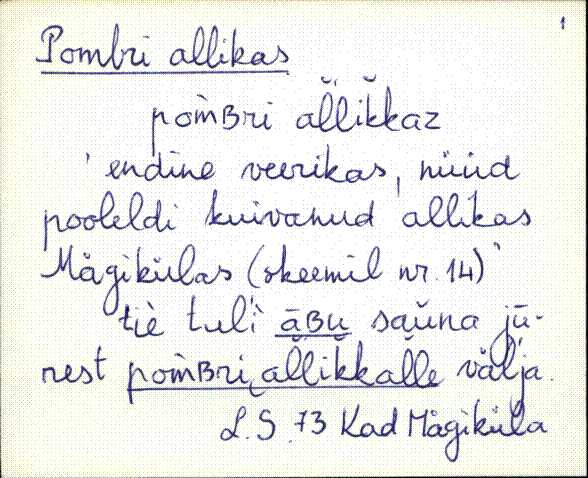 1
Pombri allikas
pom̀ʙri al̆lik̆kaz
'endine veerikas, nüüd
pooleldi kuivanud allikas
Mägikülas (skeemil nr. 14)
tiè tuli āʙu sauna jū-
rest pom̀ʙri al̆lik̆kalle välja.
L.S. 73 Kad Mägiküla